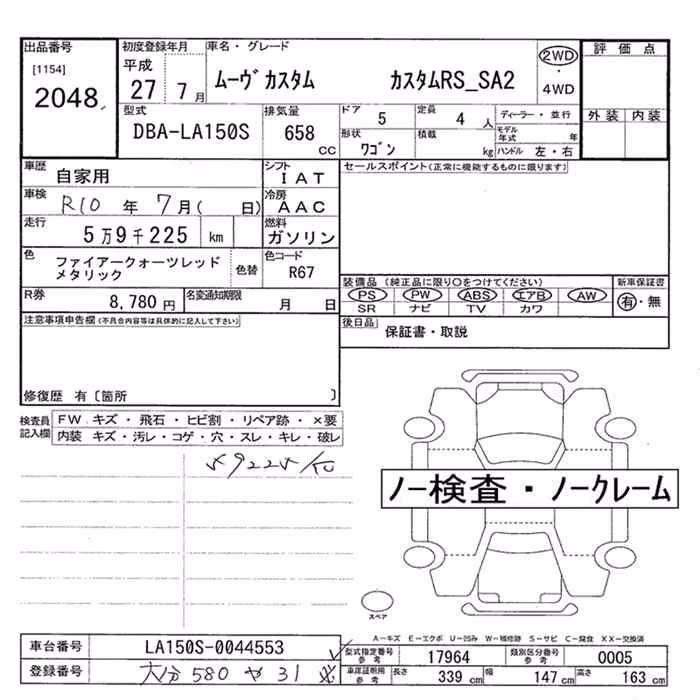 出品番号 初度登録年月 車名・グレード
[1154] 平成 2WD 評価点
2048 27 7月 ムーヴカスタム カスタムRS_SA2 ・
4WD
型式 排気量 ドア 5 定員 4人 ディーラー・並行 外装 内装
DBA-LA150S 658 CC 形状 ワゴン 積載 kg モデル年式 年
ハンドル 左・右
車歴 自家用 シフト IAT セールスポイント(正常に機能するものに限ります)
車検 R10年 7月( 日) 冷房 AAC
走行 5万9千225 km 燃料 ガソリン
色 ファイアークォーツレッド 色替 色コード
メタリック R67
装備品 (純正品に限り○をつけてください) 新車保証書
PS PW ABS エアB AW 有・無
R券 8,780円 名変通知期限 月 日 SR ナビ TV カワ
注意事項申告欄(不具合内容等は具体的に記入して下さい) 後日品 保証書・取説
修復歴 有〔箇所 〕
検査員 FW キズ・飛石・ヒビ割・リペア跡・×要
記入欄 内装 キズ・汚レ・コゲ・穴・スレ・キレ・破レ
59225/K
ノー検査・ノークレーム
スペア
A-キズ E-エクボ U-凹み W-補修跡 S-サビ C-腐食 XX-交換済
車台番号 LA150S-0044553 型式指定番号 参考 17964 類別区分番号 参考 0005
登録番号 大分580や31 車庫証明用 参考 長さ 339cm 幅 147cm 高さ 163cm